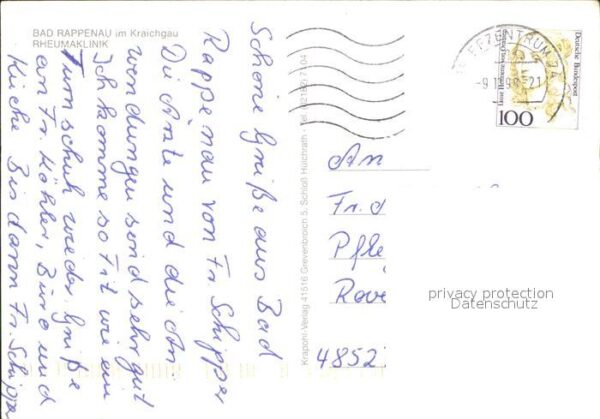 BAD RAPPENAU im Kraichgau
RHEUMAKLINIK
Schöne Grüße aus Bad
Rappenau von Fr. Schipper
Die Ärzte und die An-
wendungen sind sehr gut
Ich komme so Fit wie ein
Turnschuh wieder. Grüße
an Fr. Köhler, Büro und
Küche Bis dann Fr. Schipper
Krapohl-Verlag 41516 Grevenbroich 5, Schloß Hülchrath - Tel.
BRIEFZENTRUM
-9
-21
Deutsche Bundespost
100
An
Fr.
Pfle
4852
privacy protection
Datenschutz